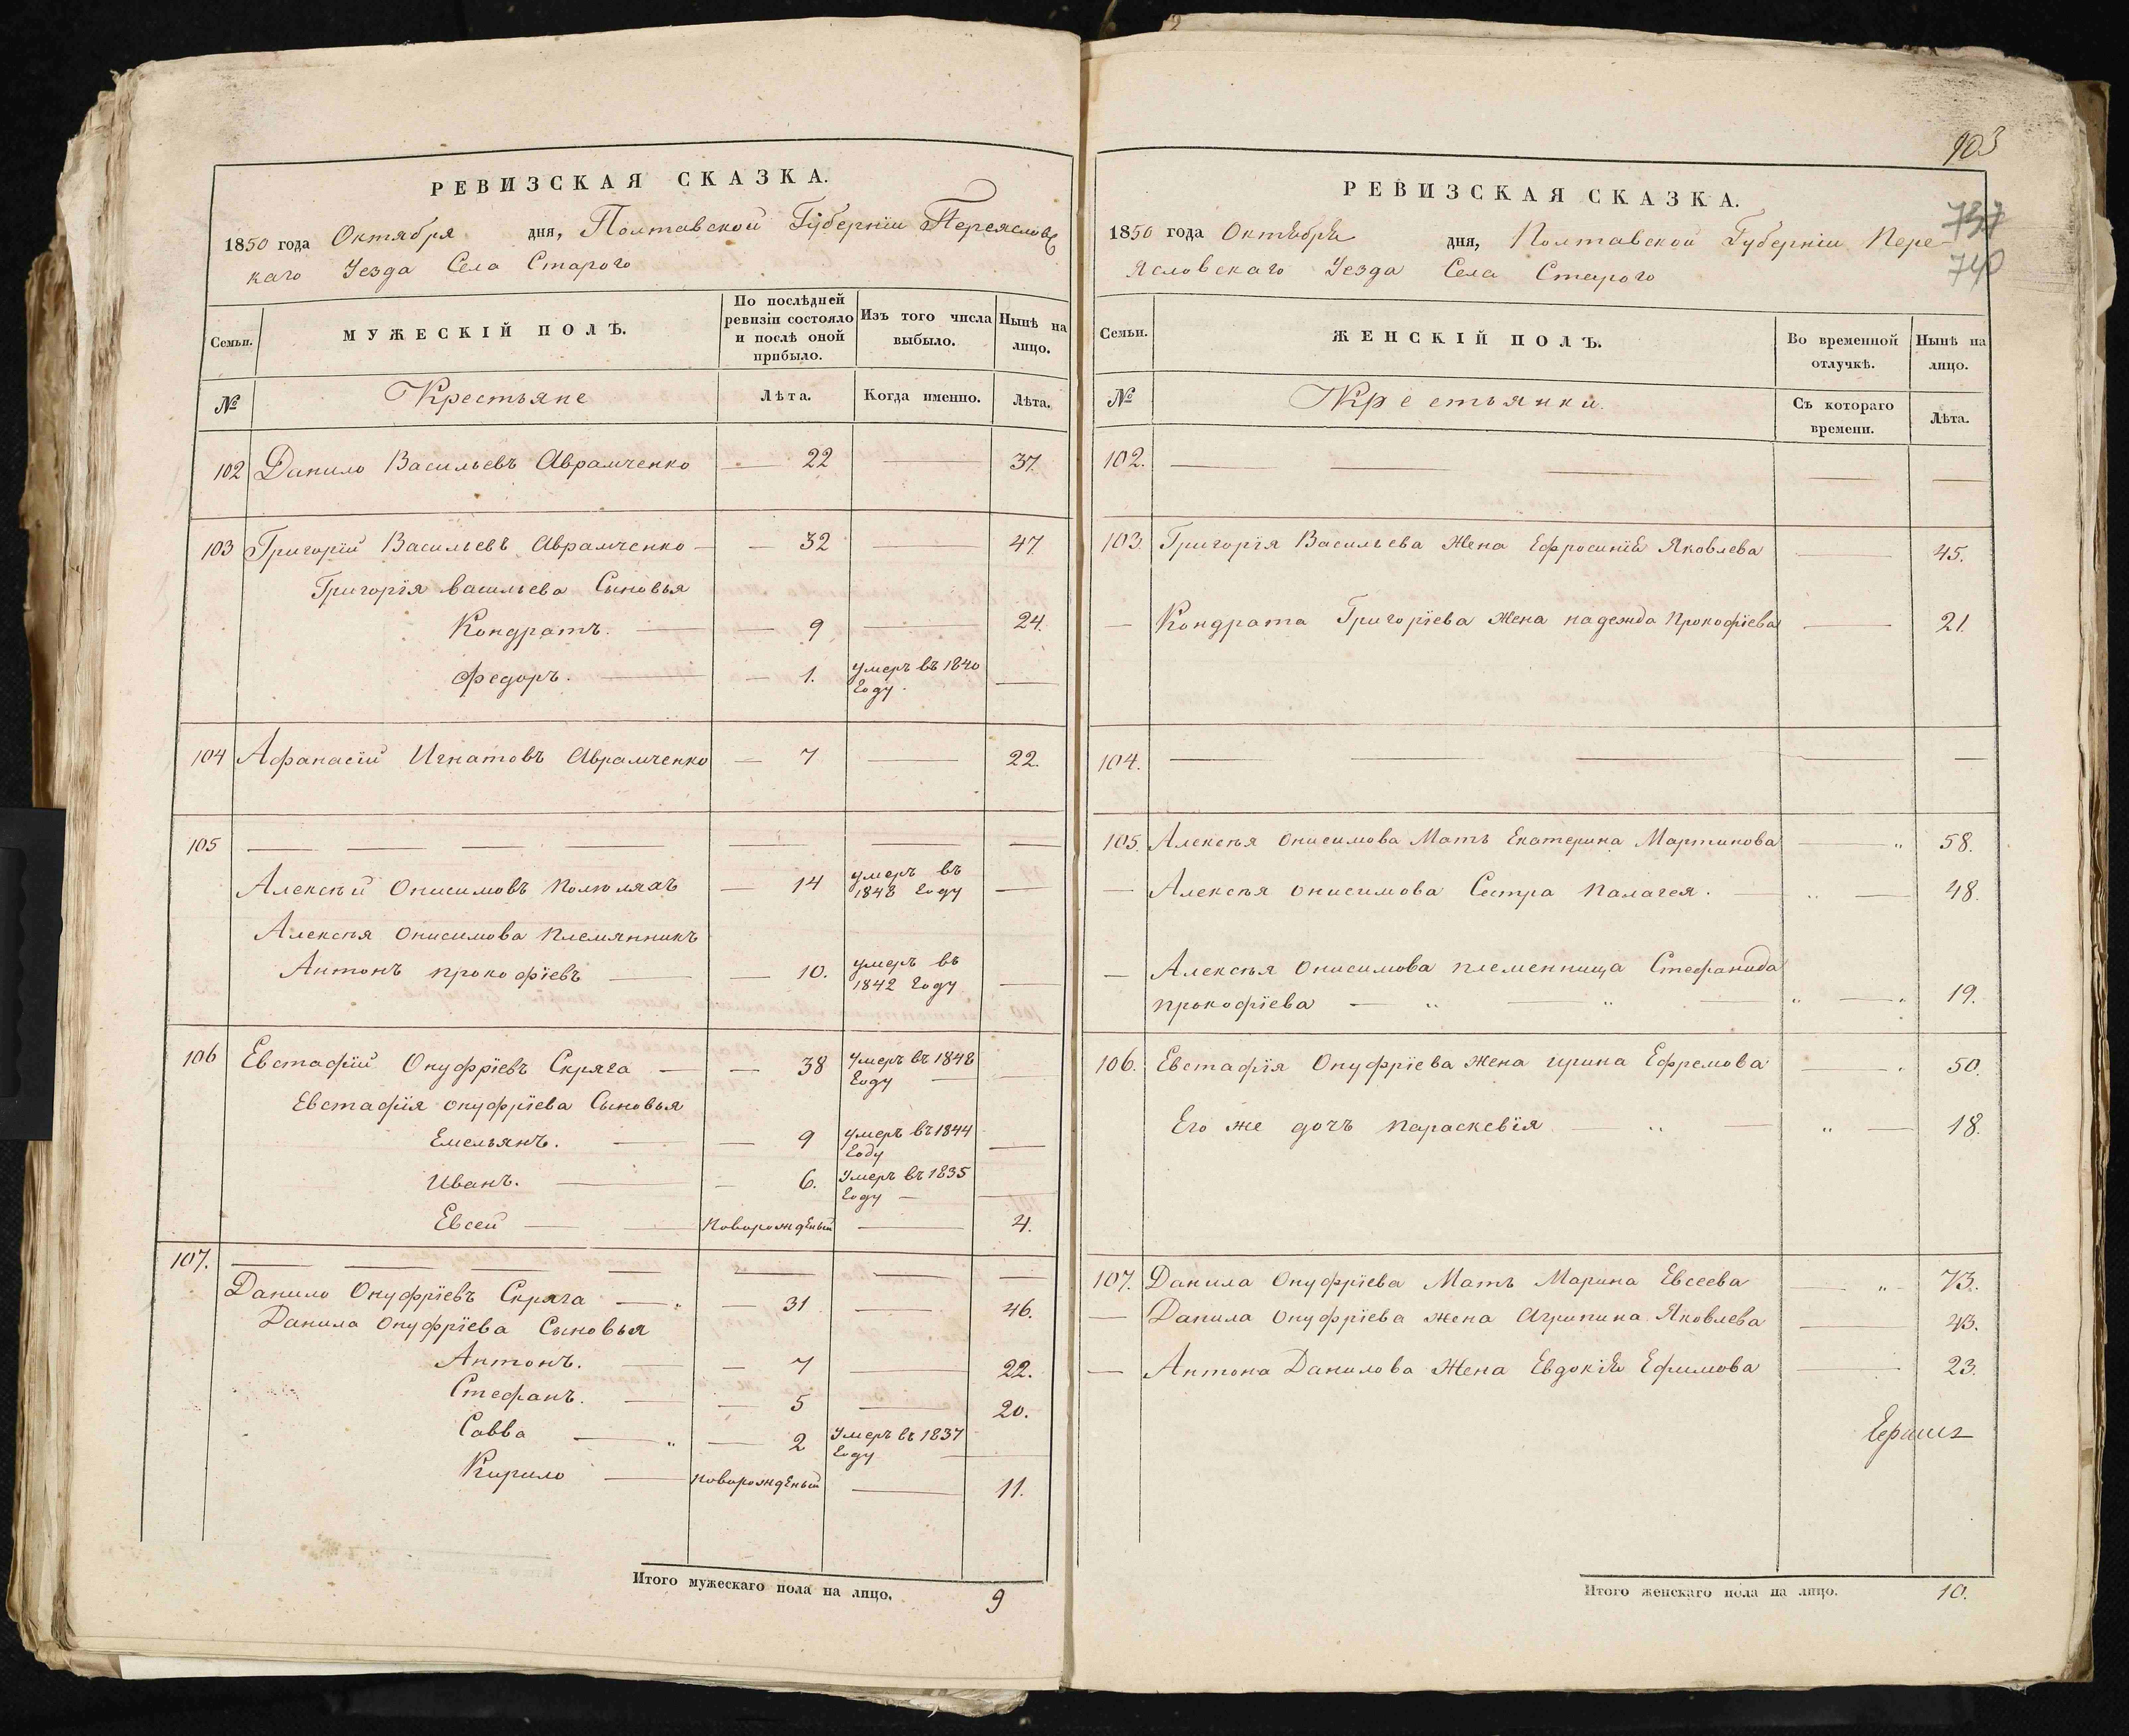 РЕВИЗСКАЯ СКАЗКА.
1850 года Октября дня, Полтавской Губерніи Переяслов
каго Уезда Села Старого
Семьи. МУЖЕСКІЙ ПОЛЪ. По послѣдней ревизіи состояло и послѣ оной прибыло. Изъ того числа выбыло. Нынѣ на лицо.
№ Крестьяне Лѣта. Когда именно. Лѣта.
102 Данило Васильевъ Аврамченко — 22 — 37.
103 Григорій Васильевъ Аврамченко — 32 — 47
Григорія Васильева Сыновья
Кондратъ. — 9 — 24.
Федоръ. — 1. умеръ въ 1840 году. —
104 Афанасій Игнатовъ Аврамченко — 7 — 22.
105 — — — — — — — —
Алексѣй Онисимовъ — 14 умеръ въ 1848 году —
Алексѣя Онисимова Племянникъ
Антонъ Прокофіевъ — 10. умеръ въ 1842 году —
106 Евстафій Онуфріевъ Скряга — 38 умеръ въ 1848 году —
Евстафія Онуфріева Сыновья
Емельянъ. — 9 умеръ въ 1844 году —
Иванъ. — 6. Умеръ въ 1835 году —
Евсей — новорожденый — 4.
107. — — — — — — —
Данило Онуфріевъ Скряга — 31 — 46.
Данила Онуфріева Сыновья
Антонъ. — 7 — 22.
Стефанъ. — 5 — 20.
Савва — 2 Умеръ въ 1837 году —
Кирило — новорожденый — 11.
Итого мужескаго пола на лицо. 9
103
737
740
РЕВИЗСКАЯ СКАЗКА.
1850 года Октября дня, Полтавской Губерніи Пере-
ясловскаго Уезда Села Старого
Семьи. ЖЕНСКІЙ ПОЛЪ. Во временной отлучкѣ. Нынѣ на лицо.
№ Крестьянки. Съ котораго времени. Лѣта.
102. — — — — —
103. Григорія Васильева Жена Ефросинія Яковлева — 45.
— Кондрата Григоріева Жена надежда Прокофіева — 21.
104. — — — — —
105. Алексѣя Онисимова Мать Екатерина Мартинова — „ 58.
— Алексѣя Онисимова Сестра Палагея. — 48.
— Алексѣя Онисимова племенница Стефанида
Прокофіева — „ — „ — 19.
106. Евстафія Онуфріева Жена Ирина Ефремова — 50.
Его же дочь Параскевія — „ — 18.
107. Данила Онуфріева Мать Марина Евсеева — „ 73.
— Данила Онуфріева Жена Агрипина Яковлева — 43.
— Антона Данилова Жена Евдокія Ефимова — 23.
Итого женскаго пола на лицо. 10.